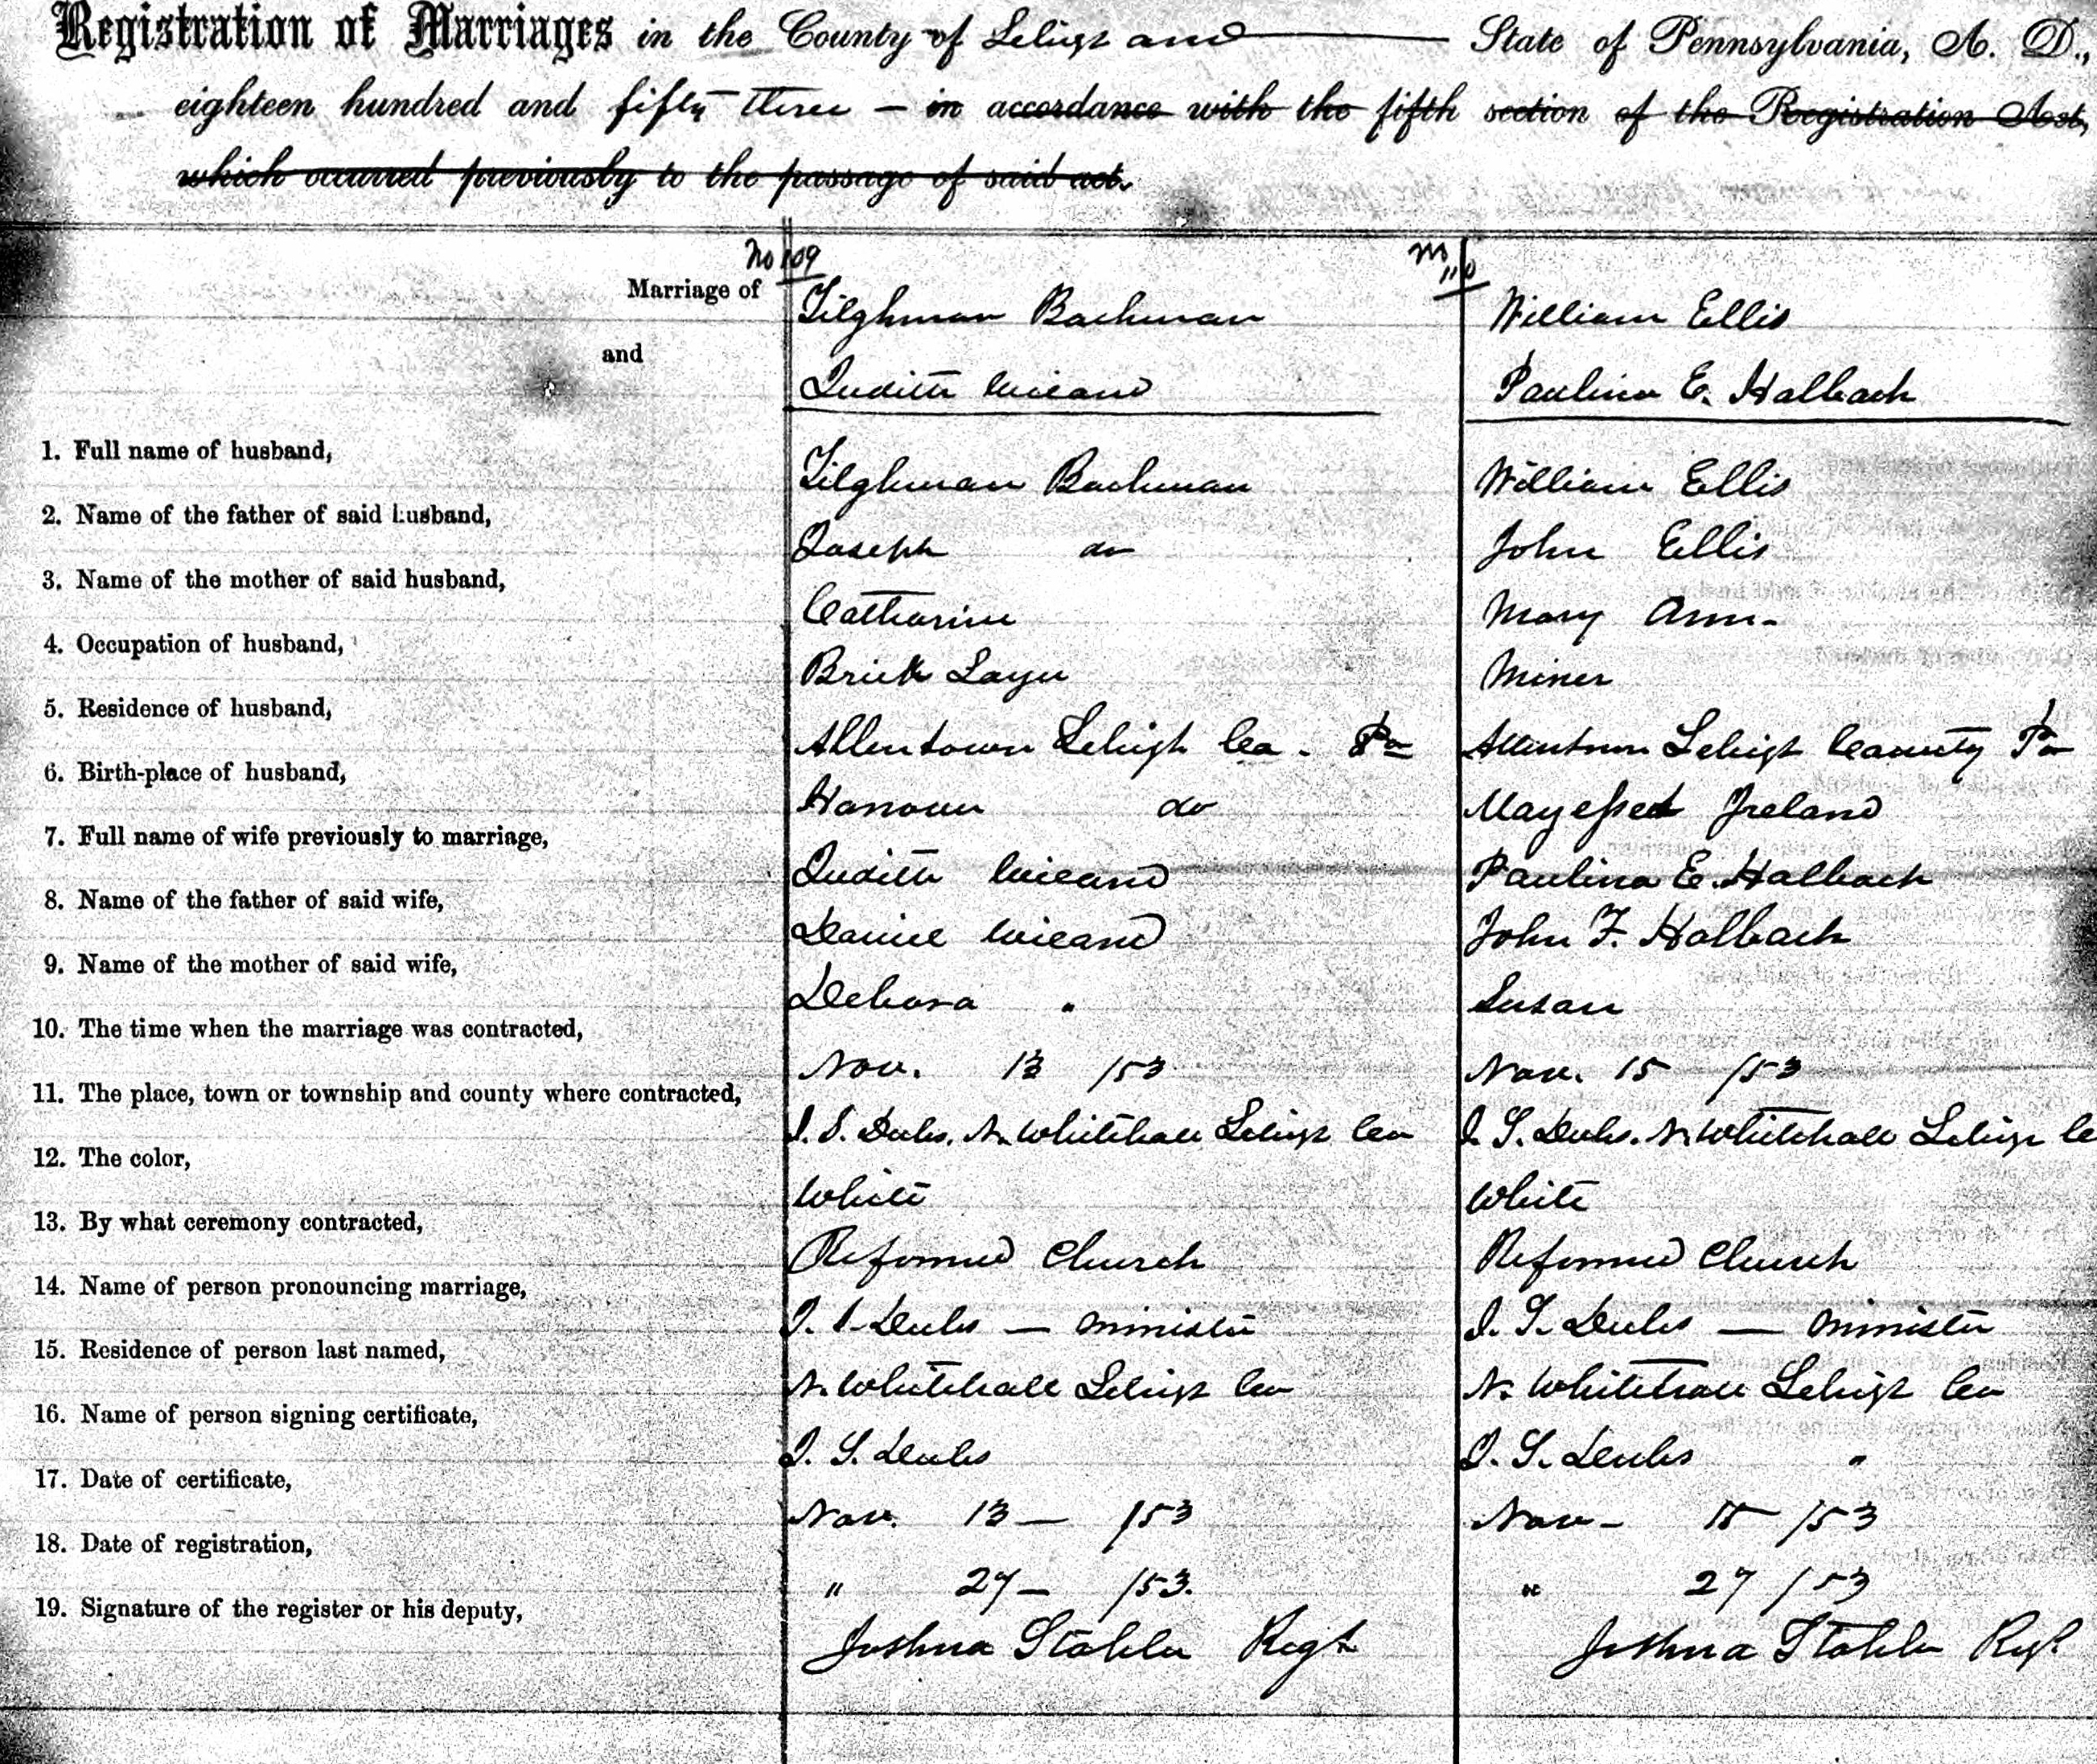 Registration of Marriages in the County of Lehigh and — State of Pennsylvania, A. D.,
eighteen hundred and fifty three – in accordance with the fifth section of the Registration Act,
which occurred previously to the passage of said act.
No 109
No 110
Marriage of Tilghman Bachman William Ellis
and Judith Wieand Paulina E. Halbach
1. Full name of husband, Tilghman Bachman William Ellis
2. Name of the father of said husband, Joseph do John Ellis
3. Name of the mother of said husband, Catharine Mary Ann-
4. Occupation of husband, Brick Layer Miner
5. Residence of husband, Allentown Lehigh Co. Pa Allentown Lehigh County Pa
6. Birth-place of husband, Hanover do Ireland
7. Full name of wife previously to marriage, Judith Wieand Paulina E. Halbach
8. Name of the father of said wife, Daniel Wieand John F. Halbach
9. Name of the mother of said wife, Debora " Susan
10. The time when the marriage was contracted, Nov. 13 /53 Nov. 15 /53
11. The place, town or township and county where contracted, J. S. Dubs. N. Whitehall Lehigh Co J. S. Dubs. N. Whitehall Lehigh Co
12. The color, White White
13. By what ceremony contracted, Reformed Church Reformed Church
14. Name of person pronouncing marriage, J. S. Dubs — Minister J. S. Dubs — Minister
15. Residence of person last named, N. Whitehall Lehigh Co N. Whitehall Lehigh Co
16. Name of person signing certificate, J. S. Dubs J. S. Dubs "
17. Date of certificate, Nov. 13 — /53 Nov – 15 /53
18. Date of registration, " 27 — /53. " 27 /53
19. Signature of the register or his deputy, Joshua Stahler Regr Joshua Stahler Regr